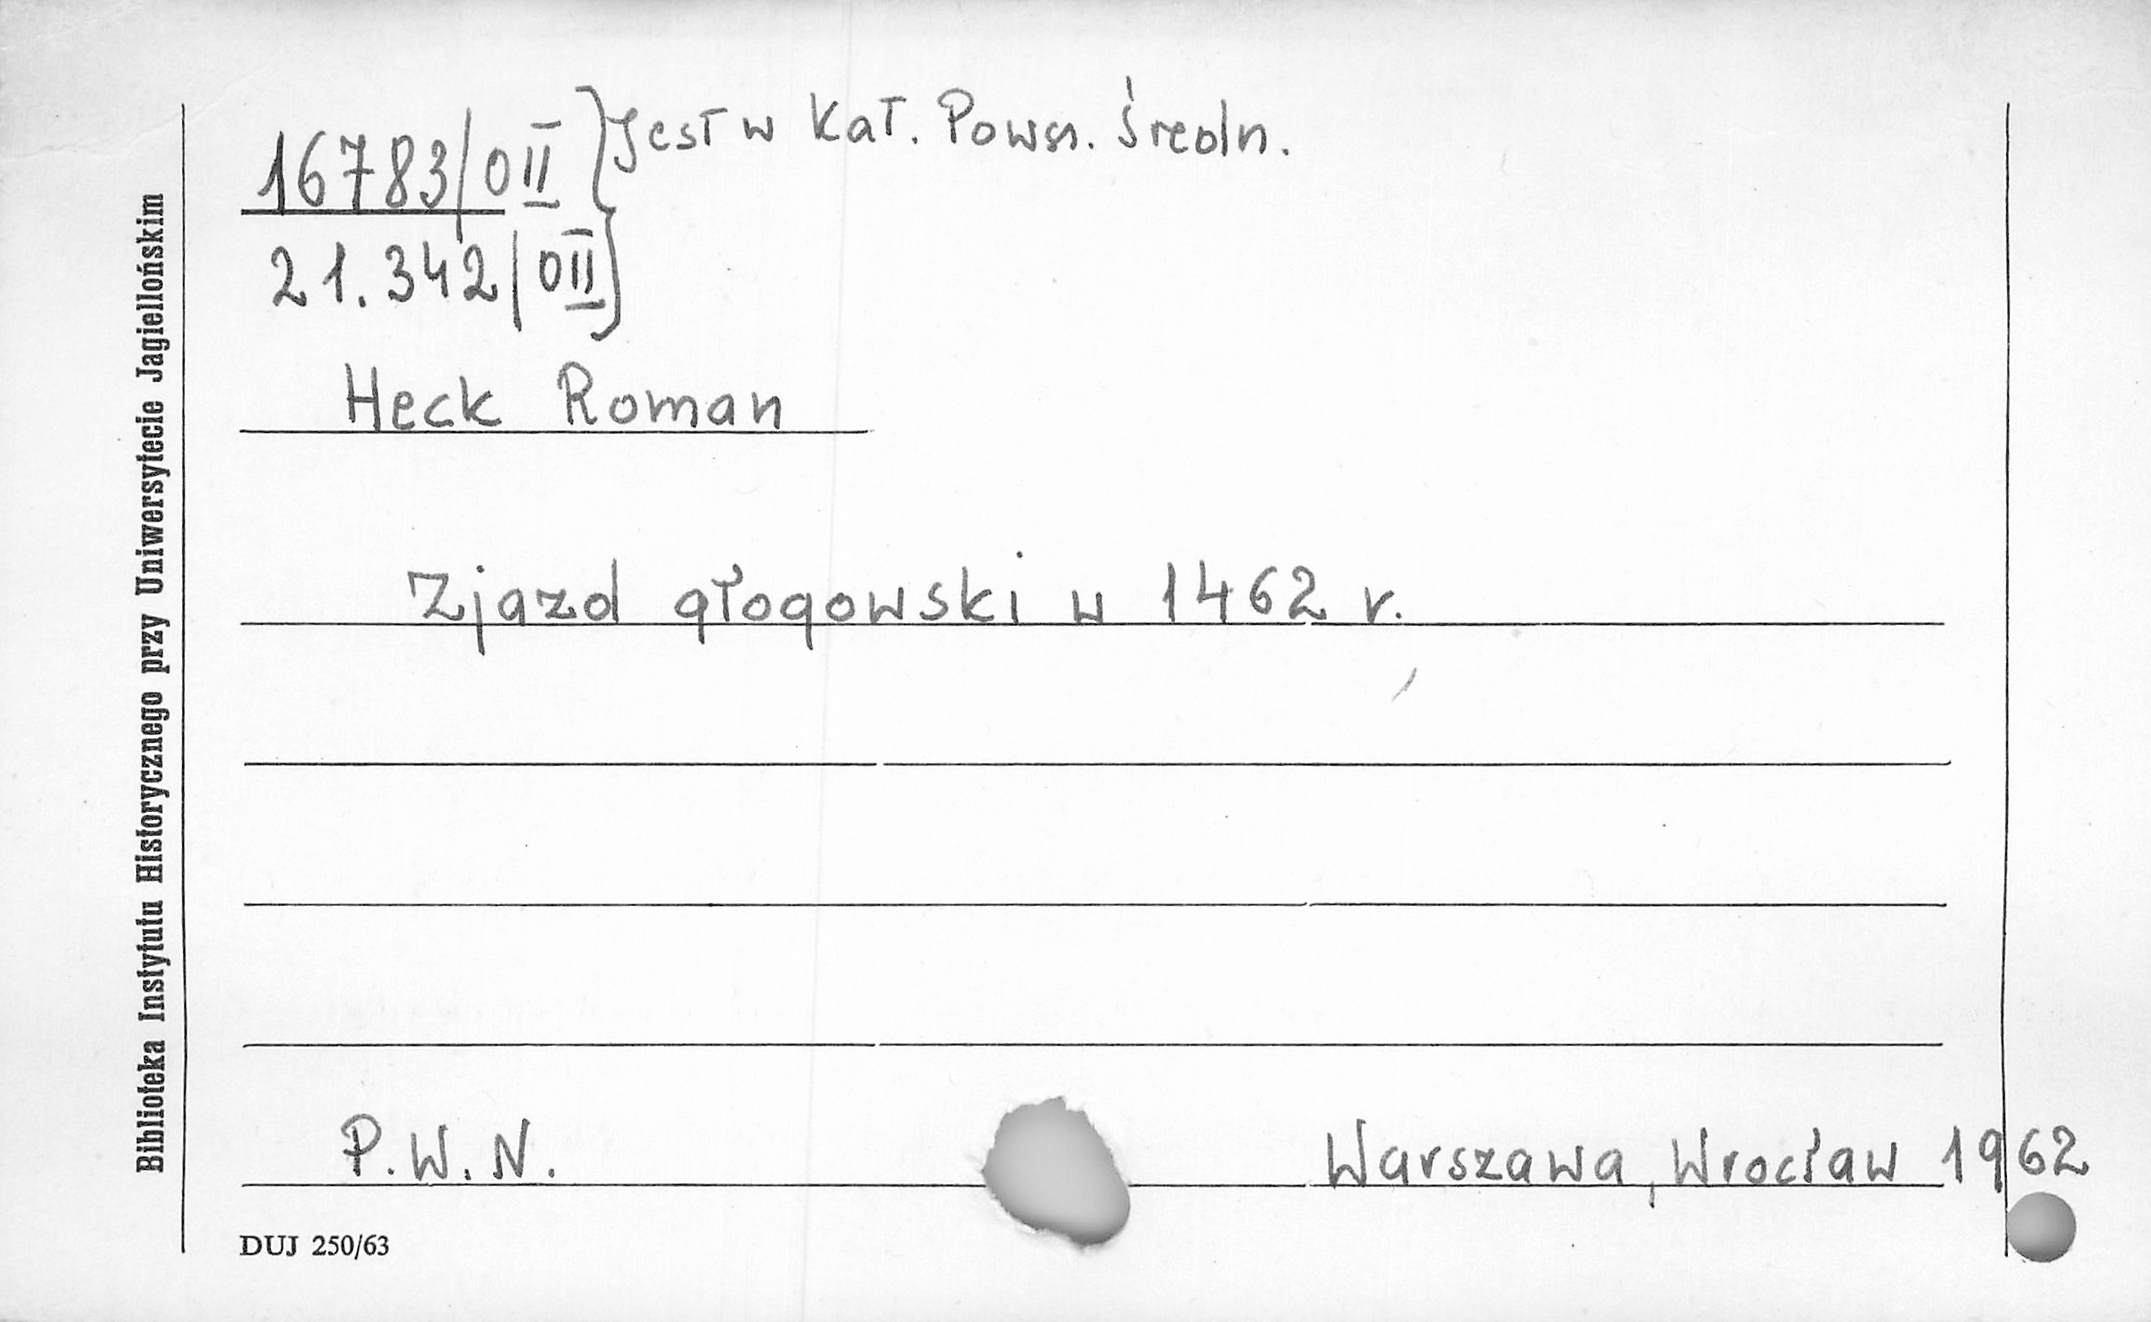 16783/0II } Jest w Kat. Powsz. Średn.
21.342/0II }
Heck Roman
Zjazd głogowski w 1462 r.
P.W.N. Warszawa, Wrocław 1962
DUJ 250/63
Biblioteka Instytutu Historycznego przy Uniwersytecie Jagiellońskim